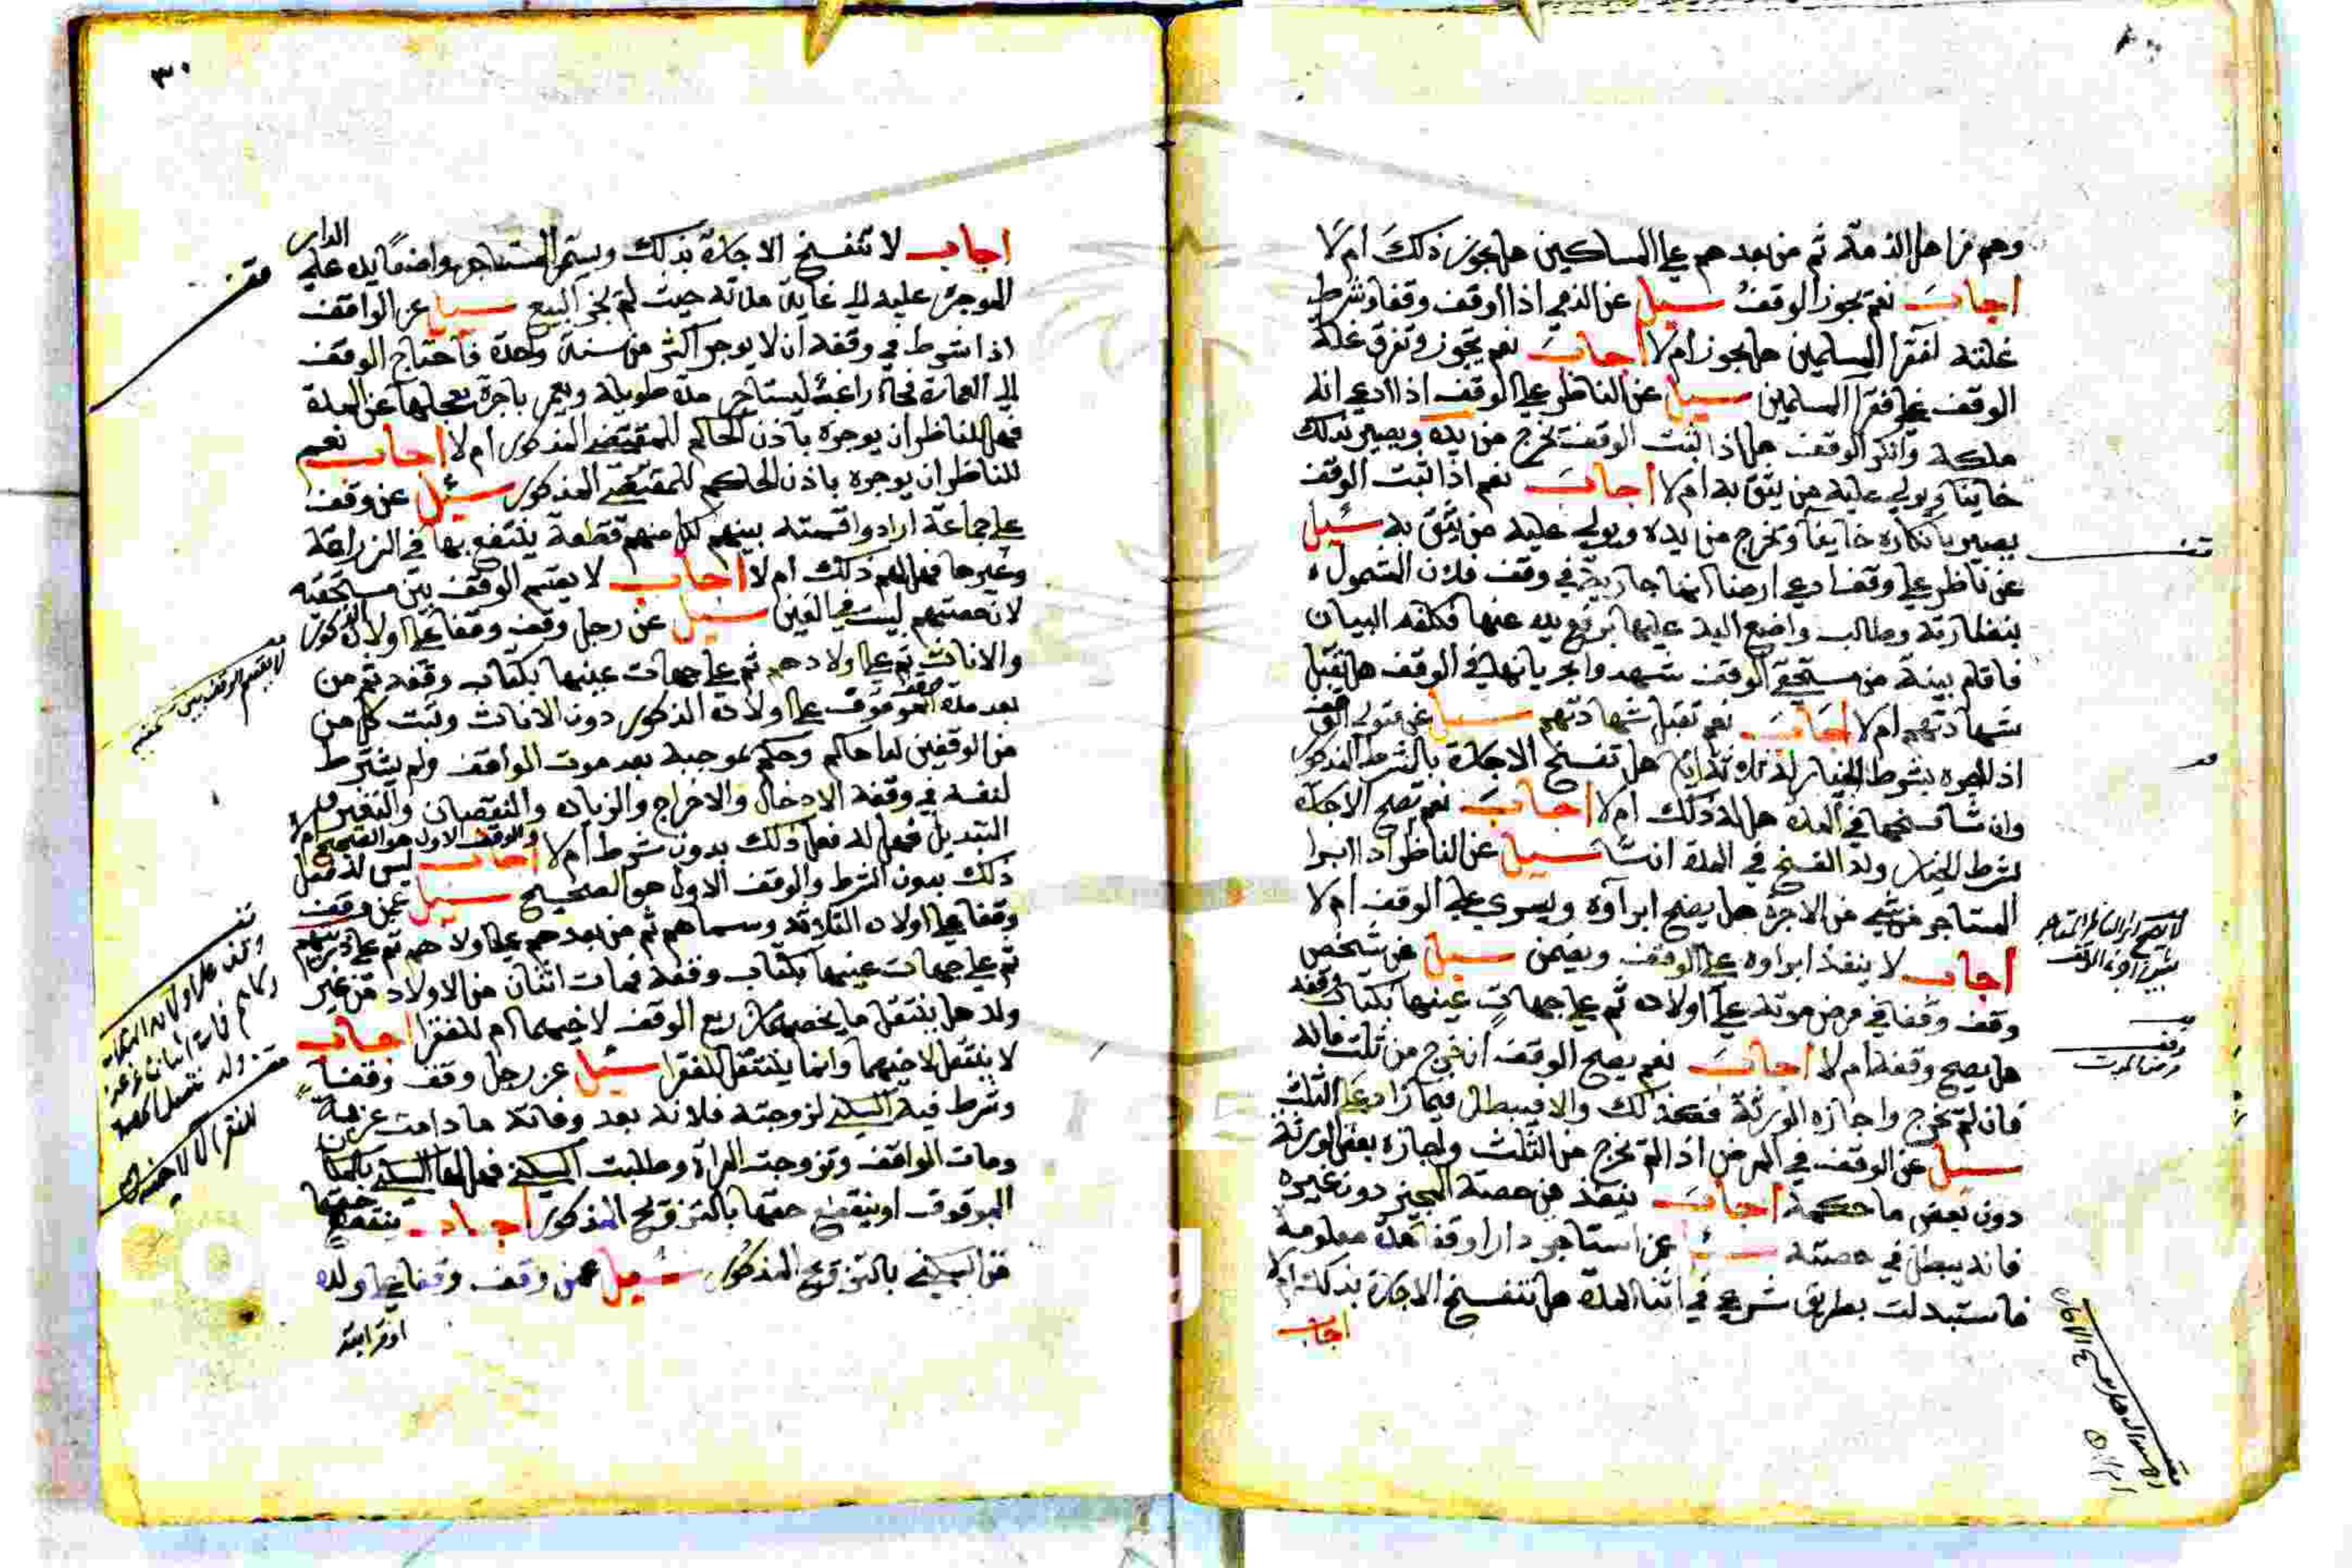 وهم من اهل الذمة ثم من بعدهم علي المساكين هل يجوز ذلك ام لا
اجاب نعم يجوز الوقف سيل عن الذمي اذا اوقف وقفا وشرط
غلته لفقرا المسلمين هل يجوز ام لا اجاب نعم يجوز وتفرق غلة
الوقف علي فقرا المسلمين سيل عن الناظر علي الوقف اذا ادعي انه
ملكه وانكر الوقف هل اذا ثبت الوقف يخرج من يده ويصير بذلك
خاينا ويولي عليه من يثق به ام لا اجاب نعم اذا ثبت الوقف
يصير بانكاره خاينا ويخرج من يده ويولي عليه من يثق به سئيل
عن ناظر علي وقف ادعي ارضا انها جارية في وقف فلان المشمول
بنظارته وطالب واضع اليد عليها برفع يده عنها فكلفه البيان
فاقام بينة من مستحقي الوقف شهدوا بجريانها في الوقف هل تقبل
شهادتهم ام لا اجاب نعم تقبل شهادتهم سيل عن متولي الوقف
اذا اجره بشرط الخيار له ثلاثة ايام هل تفسخ الاجارة بالشرط المذكور
وان شا فسخها في المدة هل له ذلك ام لا اجاب نعم تصح الاجارة
بشرط الخيار وله الفسخ في المدة ان شا سيل عن الناظر اذا ابرا
المستاجر من شي من الاجرة هل يصح ابراؤه ويسري علي الوقف ام لا
اجاب لا ينفذ ابراوه علي الوقف ويضمن سيل عن شخص
وقف وقفا في مرض موته علي اولاده ثم علي جهات عينها بكتاب وقفه
هل يصح وقفه ام لا اجاب نعم يصح الوقف ان خرج من ثلث ماله
فان لم يخرج واجازه الورثة فكذلك والا فيبطل فيما زاد علي الثلث
سيل عن الوقف في المرض اذا لم يخرج من الثلث واجازه بعض الورثة
دون بعض ما حكمه اجاب ينفذ من حصة المجيز دون غيره
فانه يبطل في حصته سئل عن استاجر دارا وقفا مدة معلومة
فاستبدلت بطريق شرعي في اثنا المدة هل تنفسخ الاجارة بذلك ام لا
اجاب
وقف
مرض الموت
٣٠
اجاب لا تنفسخ الاجارة بذلك ويستمر المستاجر واضعا يده علي الدار
الموجرة عليه الي غاية مدته حيث لم يجز البيع سيل عن الواقف
اذا شرط في وقفه ان لا يوجر اكثر من سنة واحدة فاحتاج الوقف
الي العمارة فجاء راغب ليستاجر مدة طويلة ويعمر باجرة يعجلها عن المدة
فهل للناظر ان يوجره باذن الحاكم للمقتضي المذكور ام لا اجاب نعم
للناظر ان يوجره باذن الحاكم للمقتضي المذكور سئيل عن وقف
علي جماعة ارادوا قسمته بينهم لكل منهم قطعة ينتفع بها في الزراعة
وغيرها فهل لهم ذلك ام لا اجاب لا يقسم الوقف بين مستحقيه
لان حصتهم ليست في العين سئيل عن رجل وقف وقفا علي اولاده الذكور
والاناث ثم علي اولادهم ثم علي جهات عينها بكتاب وقفه ثم من
بعد مدة وقف الموقوف علي اولاده الذكور دون الاناث وثبت كل من
من الوقفين لدا حاكم وحكم بموجبه بعد موت الواقف ولم يشترط
لنفسه في وقفه الادخال والاخراج والزيادة والنقصان والتغير و
التبديل فهل له فعل ذلك بدون شرط ام لا والوقف الاول هو الصحيح ام لا اجاب ليس له فعل
ذلك بدون الشرط والوقف الاول هو الصحيح سئيل عمن وقف
وقفا علي اولاده الثلاثة وسماهم ثم من بعدهم علي اولادهم ثم علي ذريتهم
ثم علي جهات عينها بكتاب وقفه فمات اثنان من الاولاد من غير
ولد هل ينتقل ما يخصهما من ريع الوقف لاخيهما ام للفقرا اجاب
لا ينتقل لاخيهما وانما ينتقل للفقرا سئيل عن رجل وقف وقفا
وشرط فيه السكني لزوجته فلانة بعد وفاته ما دامت عزبة
ومات الواقف وتزوجت المراة وطلبت السكني فهل لها السكني بالمكان
الموقوف او ينقطع حقها بالتزويج المذكور اجاب ينقطع حقها
من السكني بالتزويج المذكور سئيل عمن وقف وقفا علي ولده
لا يقسم الوقف بين مستحقيه